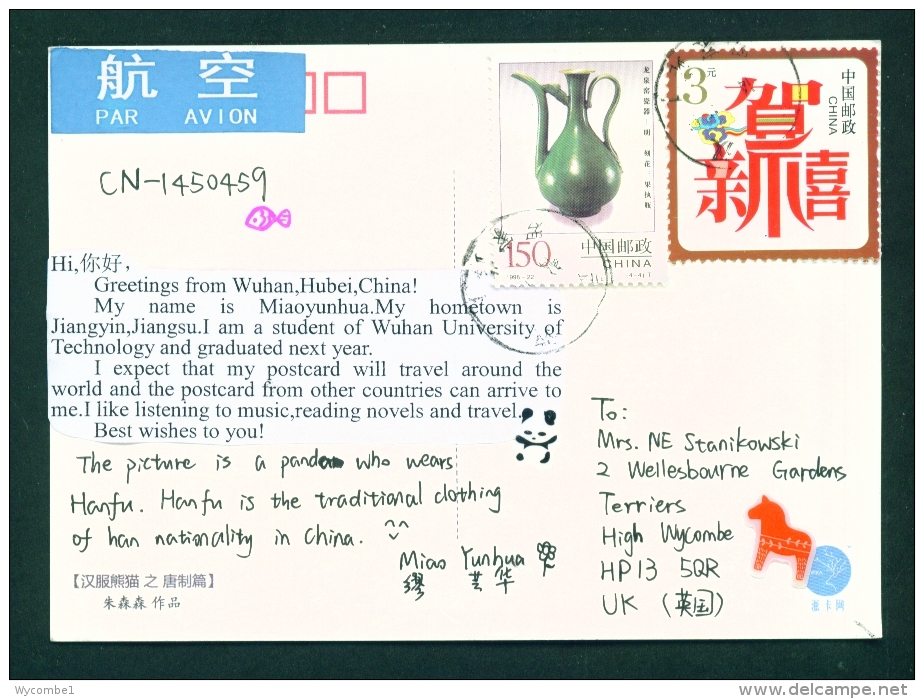 航空
PAR AVION
CN-1450459
龙泉窑瓷器·明 刻花 果执瓶
150
中国邮政
CHINA
3元
中国邮政
CHINA
贺
新禧
Hi,你好,
Greetings from Wuhan,Hubei,China!
My name is Miaoyunhua.My hometown is
Jiangyin,Jiangsu.I am a student of Wuhan University of
Technology and graduated next year.
I expect that my postcard will travel around the
world and the postcard from other countries can arrive to
me.I like listening to music,reading novels and travel.
Best wishes to you!
The picture is a panda who wears
Hanfu. Hanfu is the traditional clothing
of han nationality in China. ^^
Miao Yunhua
缪芸华
【汉服熊猫 之 唐制篇】
朱森森 作品
To:
Mrs. NE Stanikowski
2 Wellesbourne Gardens
Terriers
High Wycombe
HP13 5QR
UK (英国)
派卡网
Wycombe1
www.delcampe.net